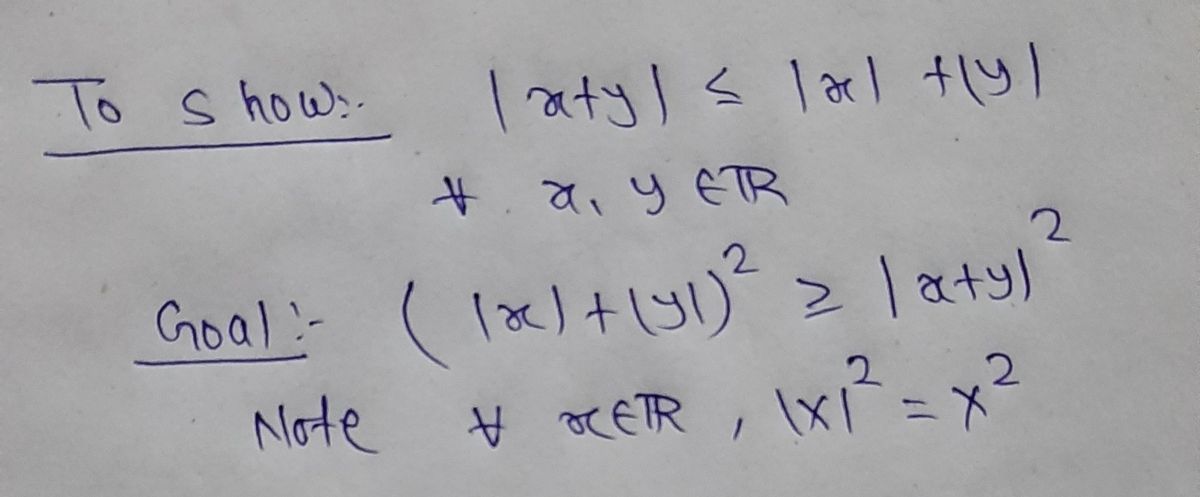 To show:- |x+y| ≤ |x| +|y|
∀ x, y ∈ ℝ
Goal:- (|x|+|y|)² ≥ |x+y|²
Note ∀ x∈ℝ, |x|² = x²